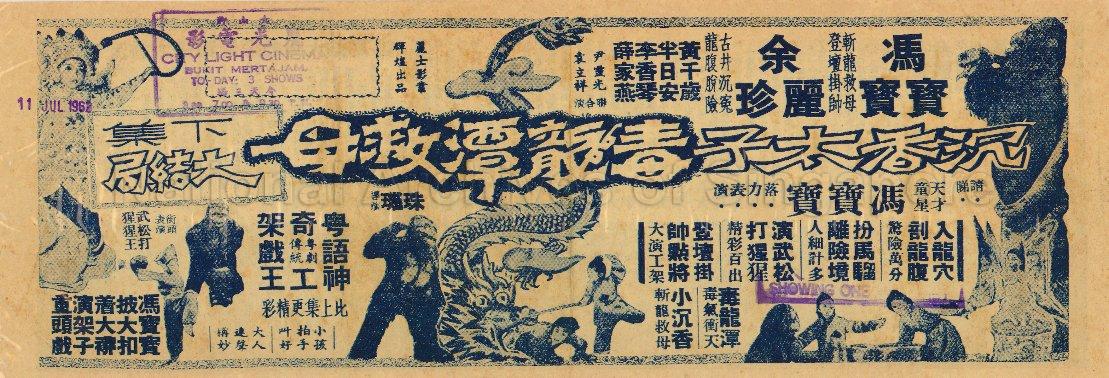 馮寶寶
斬龍救母
登壇掛帥
余麗珍
古井沉冤
龍腹脫險
黃千歲
半日安
李香琴
薛家燕
尹靈光
袁立祥
聯合演
麗士影業
輝煌出品
沉香太子毒龍潭救母
下集
大結局
CITY LIGHT CINEMA
BUKIT MERTAJAM
TO-DAY 3 SHOWS
11 JUL 1962
請睇
天才童星
馮寶寶
落力表演
入龍穴
剖龍腹
驚險萬分
扮馬騮
離險境
人細計多
演武松
打猩猩
精彩百出
登壇掛
帥點將
大演工架
毒龍潭
毒氣衝天
小沉香
斬龍救母
SHOWING ONE
珠璣
粵語神
奇工
粵劇傳統
架戲王
比上集更精彩
小孩拍手叫好
大人連聲擔妙
武松打
猩猩王
馮寶寶
披大扣
着大褲
演架子
重頭戲
National Archives of Singapore